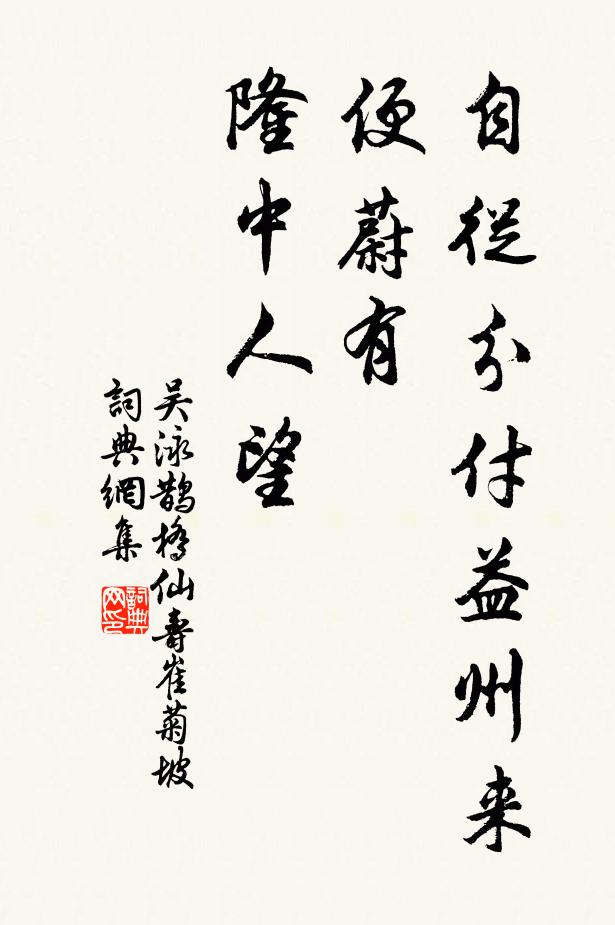 自從分付益州来
便蔚有
隆中人望
吴泳鹊橋仙壽崔菊坡
詞典網集
詞典网印